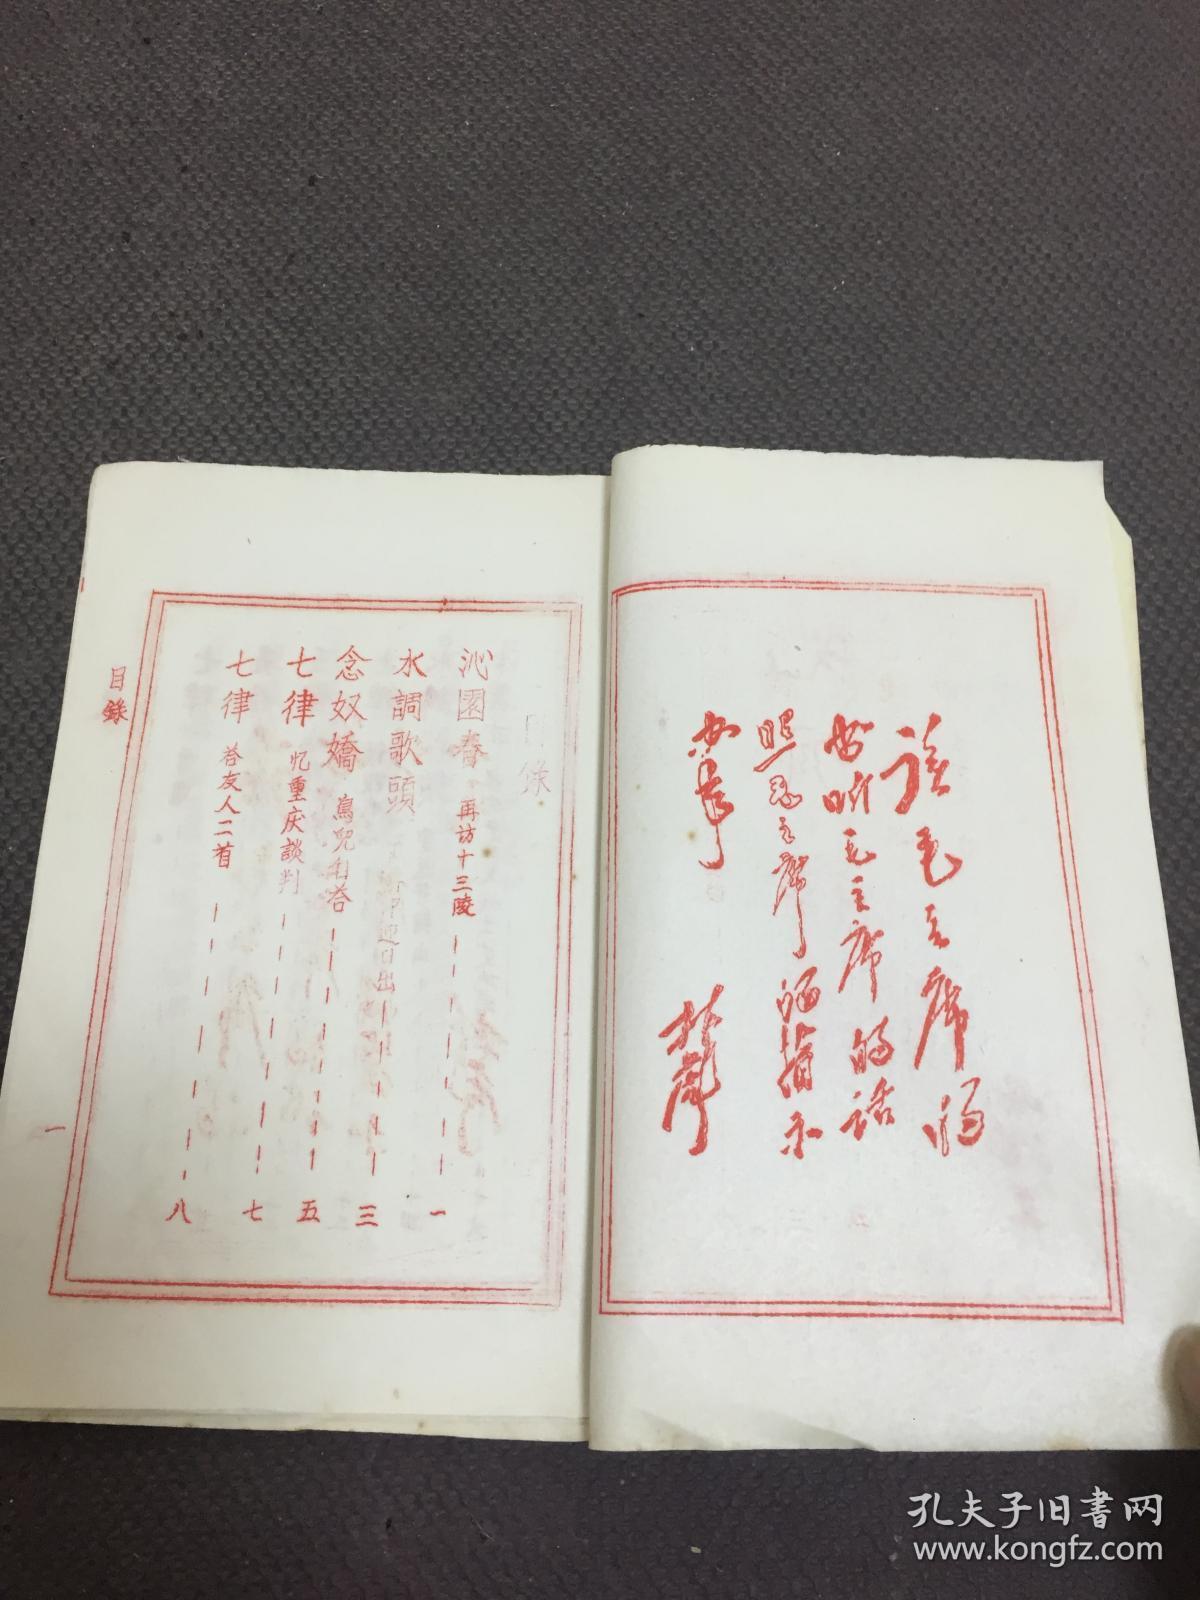 读毛主席的
书听毛主席的话
照毛主席的指示
办事
林彪
目録
沁園春 再訪十三陵 一
水調歌頭 迎日出 三
念奴嬌 鳥兒問答 五
七律 忆重庆談判 七
七律 答友人二首 八
目錄
一
孔夫子旧書网
www.kongfz.com